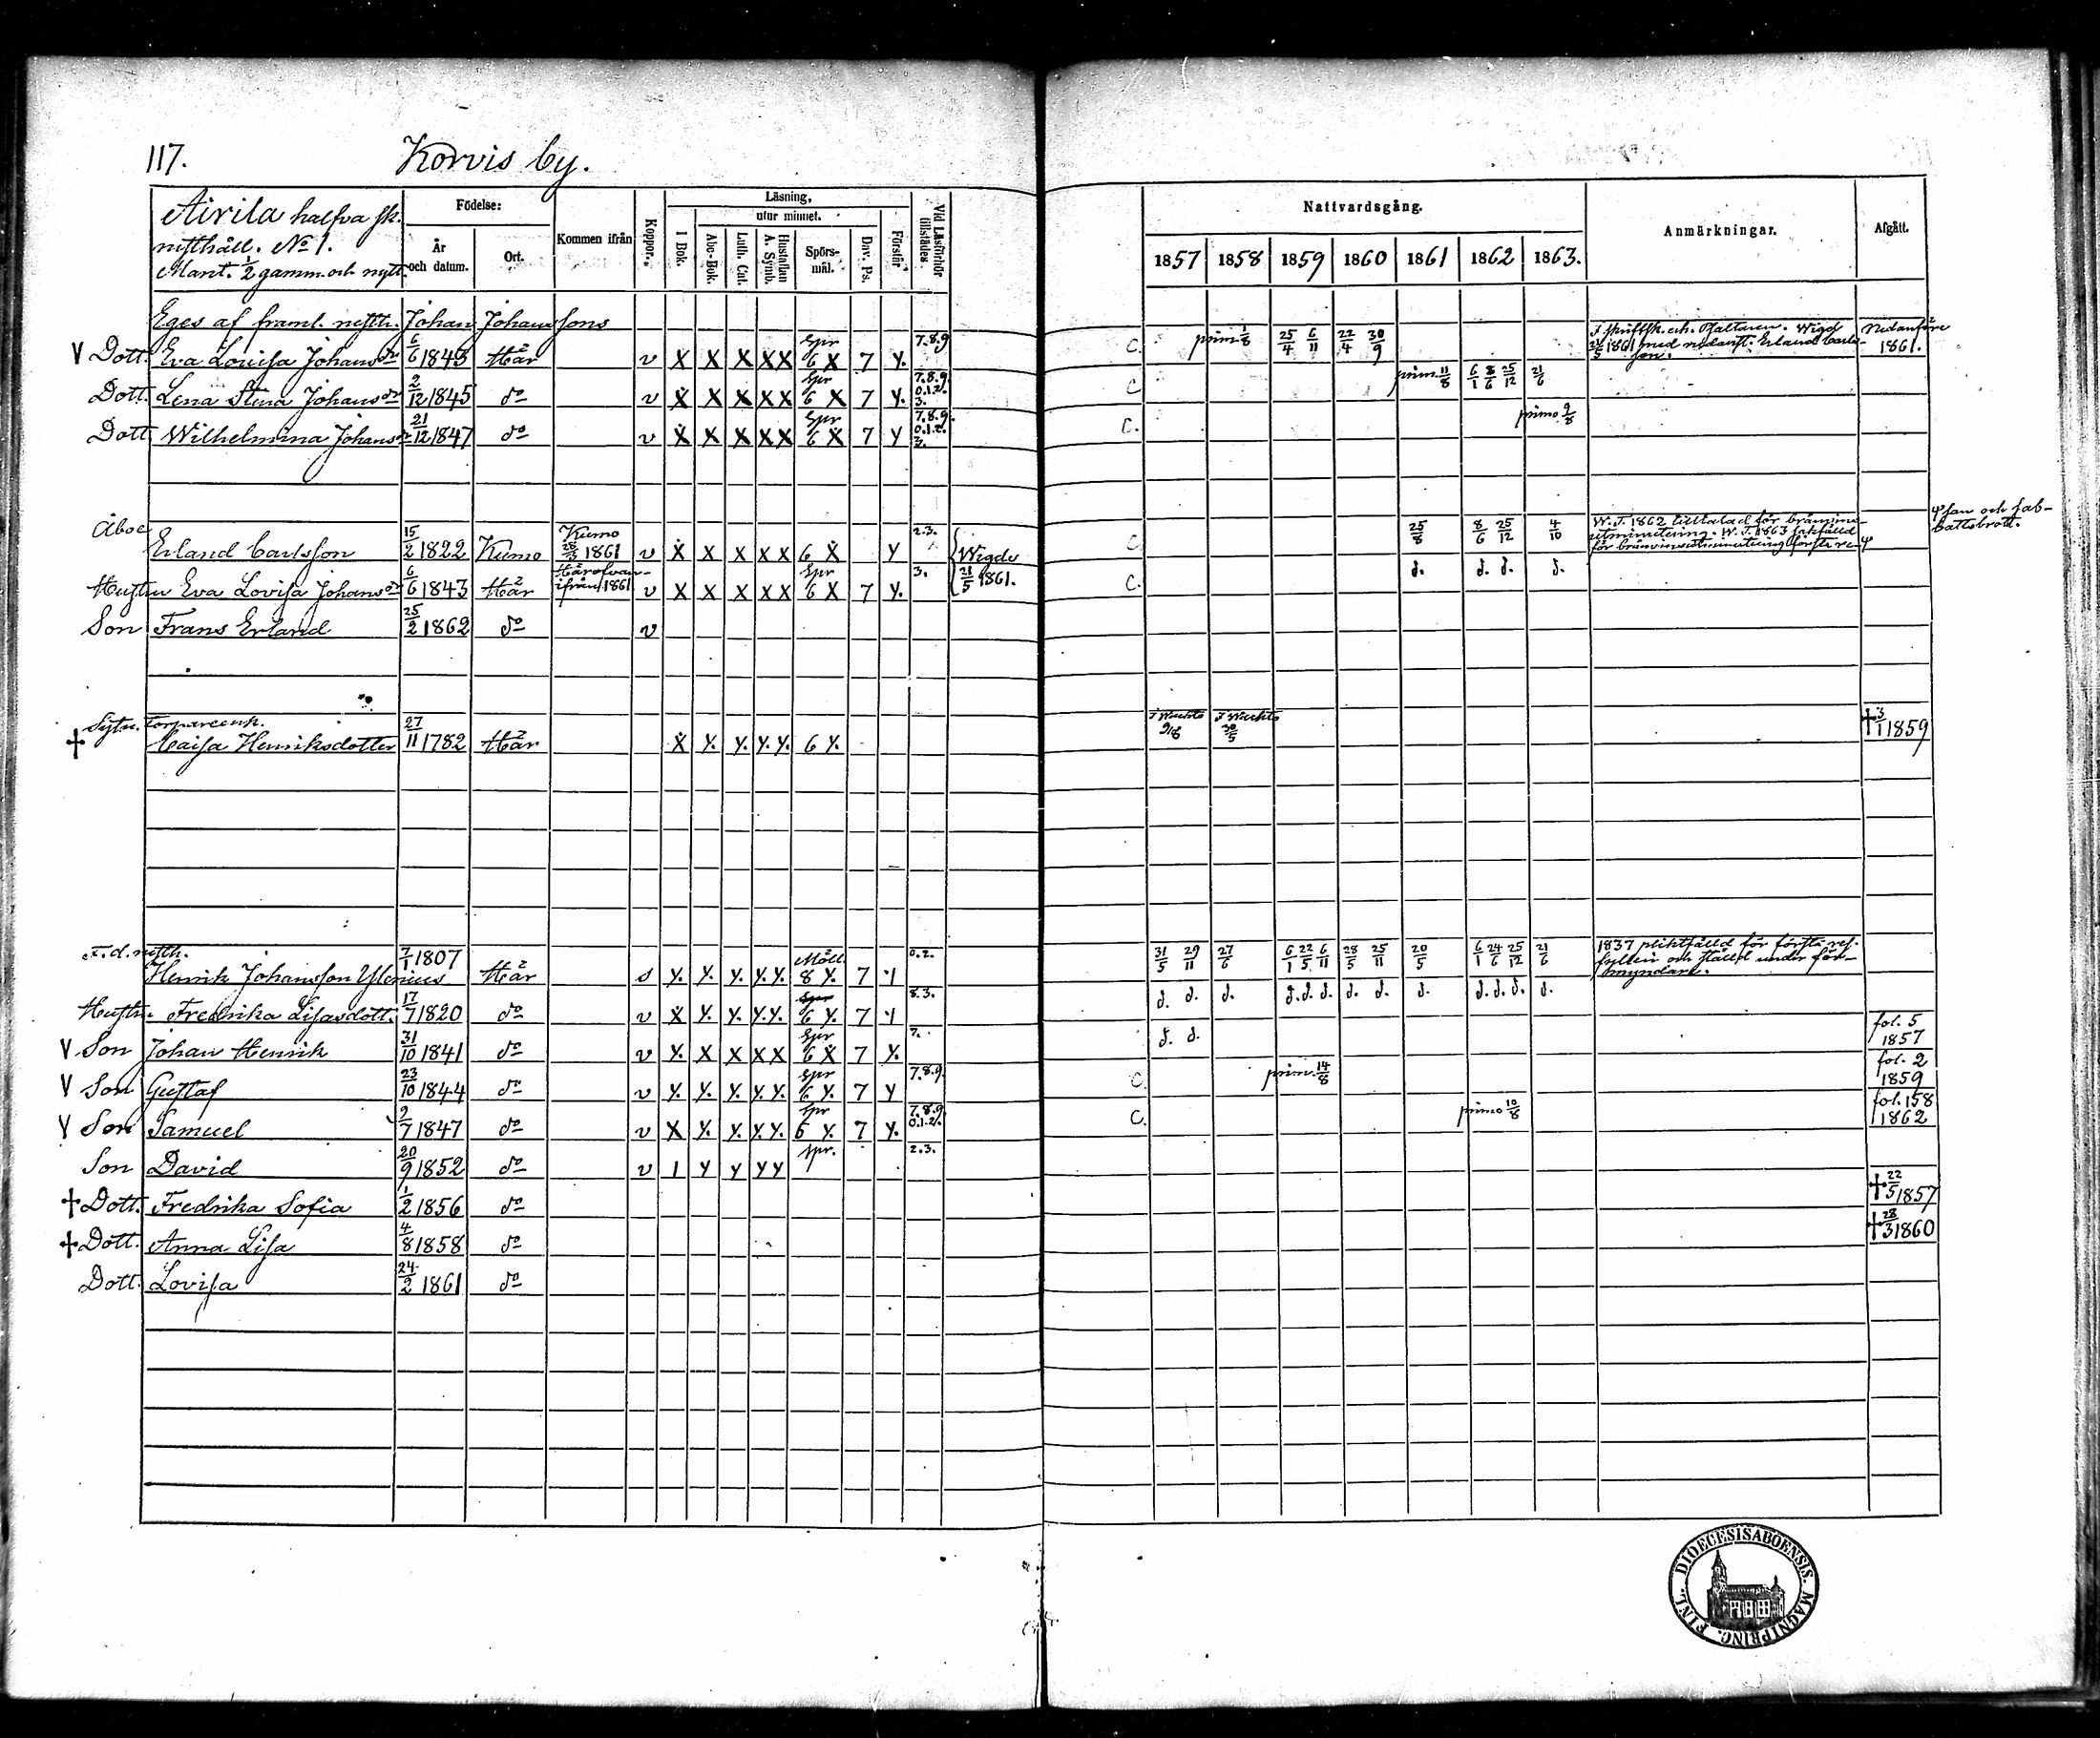 117. Korvis by.
Airila halfva sk.
rusthåll. No 1.
Mant. 1/2 gamm. och nytt
Födelse:
År och datum.
Ort.
Kommen ifrån
Koppor.
Läsning,
utur minnet.
I Bok.
Abc-Bok.
Luth. Cat.
Hustaflan A. Symb.
Spörs-mål.
Dav. Ps.
Förstår
Vid Läsförhör tillstädes.
Nattvardsgång.
1857 1858 1859 1860 1861 1862 1863.
Anmärkningar.
Afgått.
Eges af framl. rusth. Johan Johanssons
V Dott. Eva Lovisa Johansdr 6/6 1843 Här v X X X X X Spr 6 X 7 Y. 7.8.9 C. prim. 1/8 25/4 6/11 22/4 30/9 Wigd 21/5 1861 med nedanst. Erland Carlsson. Nedanföre 1861.
Dott. Lena Stina Johansdr 2/12 1845 do v X X X X X Spr 6 X 7 Y. 7.8.9. 0.1.2. 3. C prim. 11/8 6/1 8/6 25/12 21/6
Dott Wilhelmina Johansdr 21/12 1847 do v X X X X X Spr 6 X 7 Y 7.8.9. 0.1.2. 3. C. primo 9/8
Åboe Erland Carlsson 15/2 1822 Kumo Kumo 28/3 1861 v X X X X X 6 X Y 2.3. Wigde 21/5 1861. C 25/8 8/6 25/12 4/10 W. T. 1862 tilltalad för bränvins-
utminutering. W. T. 1863 sakfälld
för bränvinsutminutering första re- φ
φ san och sab-
battsbrott.
Hustru Eva Lovisa Johansdr 6/6 1843 Här Härofvan-ifrån 1861 v X X X X X Spr 6 X 7 Y. 3. C. d. d. d. d.
Son Frans Erland 25/2 1862 do v
Sytn. Torpareenk.
† Caisa Henriksdotter 27/11 1782 Här X Y. Y. Y. Y. 6 Y. †3/1 1859
F.d. rusth.
Henrik Johansson Ylenius 7/1 1807 Här s Y. Y. Y. Y. Y. 8 Y. 7 1 0.2. 31/5 29/11 27/6 6/1 22/5 6/11 28/5 25/11 20/5 6/1 24/6 25/12 21/6 1837 pliktfälld för första res.
fylleri och ställd under för-
myndare.
Hustru Fredrika Lisasdott. 17/7 1820 do v X Y. Y. Y. Y. Spr 6 Y. 7 1 8.3. d. d. d. d. d. d. d. d. d. d. d. d. d.
V Son Johan Henrik 31/10 1841 do v Y. X X X X Spr 6 X 7 Y. 7. d. d. fol. 5 1857
V Son Gustaf 23/10 1844 do v Y. Y. Y. Y. Y. Spr 6 Y. 7 Y 7.8.9. C. prim. 14/8 fol. 2 1859
V Son Samuel 9/7 1847 do v X Y. Y. Y. Y. Spr 6 Y. 7 Y. 7.8.9 0.1.2. C. primo 10/8 fol. 158 1862
Son David 20/9 1852 do v 1 Y Y Y Y Spr. 2.3.
† Dott. Fredrika Sofia 1/2 1856 do †22/5 1857
† Dott. Anna Lisa 4/8 1858 do †28/3 1860
Dott. Lovisa 24/2 1861 do
DIOECESIS ABOENSIS. MAGNI PRINC. FINL.